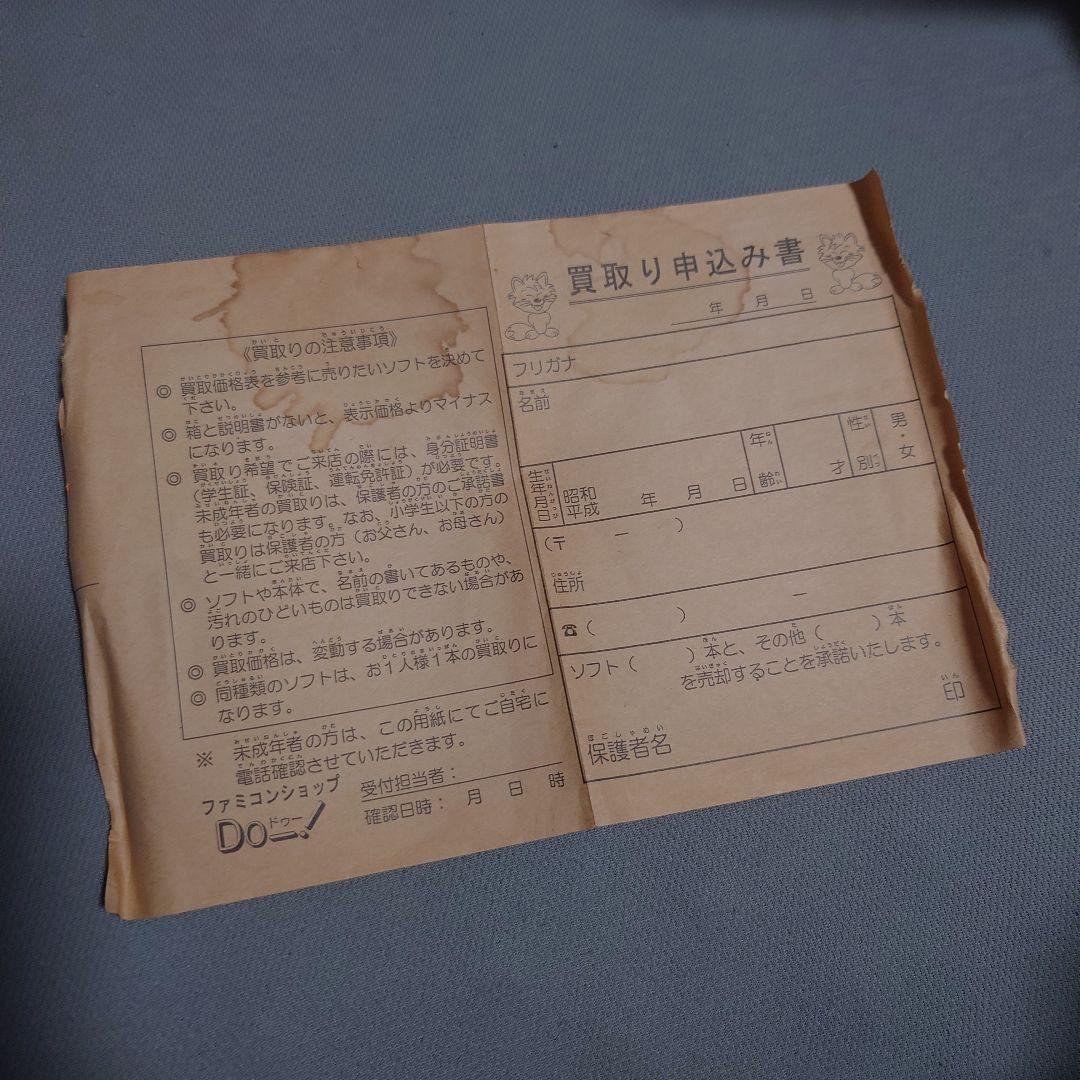 《買取りの注意事項》
◎ 買取価格表を参考に売りたいソフトを決めて
下さい。
◎ 箱と説明書がないと、表示価格よりマイナス
になります。
◎ 買取り希望でご来店の際には、身分証明書
（学生証、保険証、運転免許証）が必要です。
未成年者の買取りは、保護者の方のご承諾書
も必要になります。なお、小学生以下の方の
買取りは保護者の方（お父さん、お母さん）
と一緒にご来店下さい。
◎ ソフトや本体で、名前の書いてあるものや、
汚れのひどいものは買取りできない場合があ
ります。
◎ 買取価格は、変動する場合があります。
◎ 同種類のソフトは、お1人様1本の買取りに
なります。
※ 未成年者の方は、この用紙にてご自宅に
電話確認させていただきます。
ファミコンショップ
Do－! ドゥー
受付担当者：
確認日時： 月 日 時
買取り申込み書
年 月 日
フリガナ
名前
生年月日 昭和 平成 年 月 日 年齢 才 性別 男・女
（〒 － ）
住所
☎（ ） －
ソフト（ ）本と、その他（ ）本
を売却することを承諾いたします。
印
保護者名